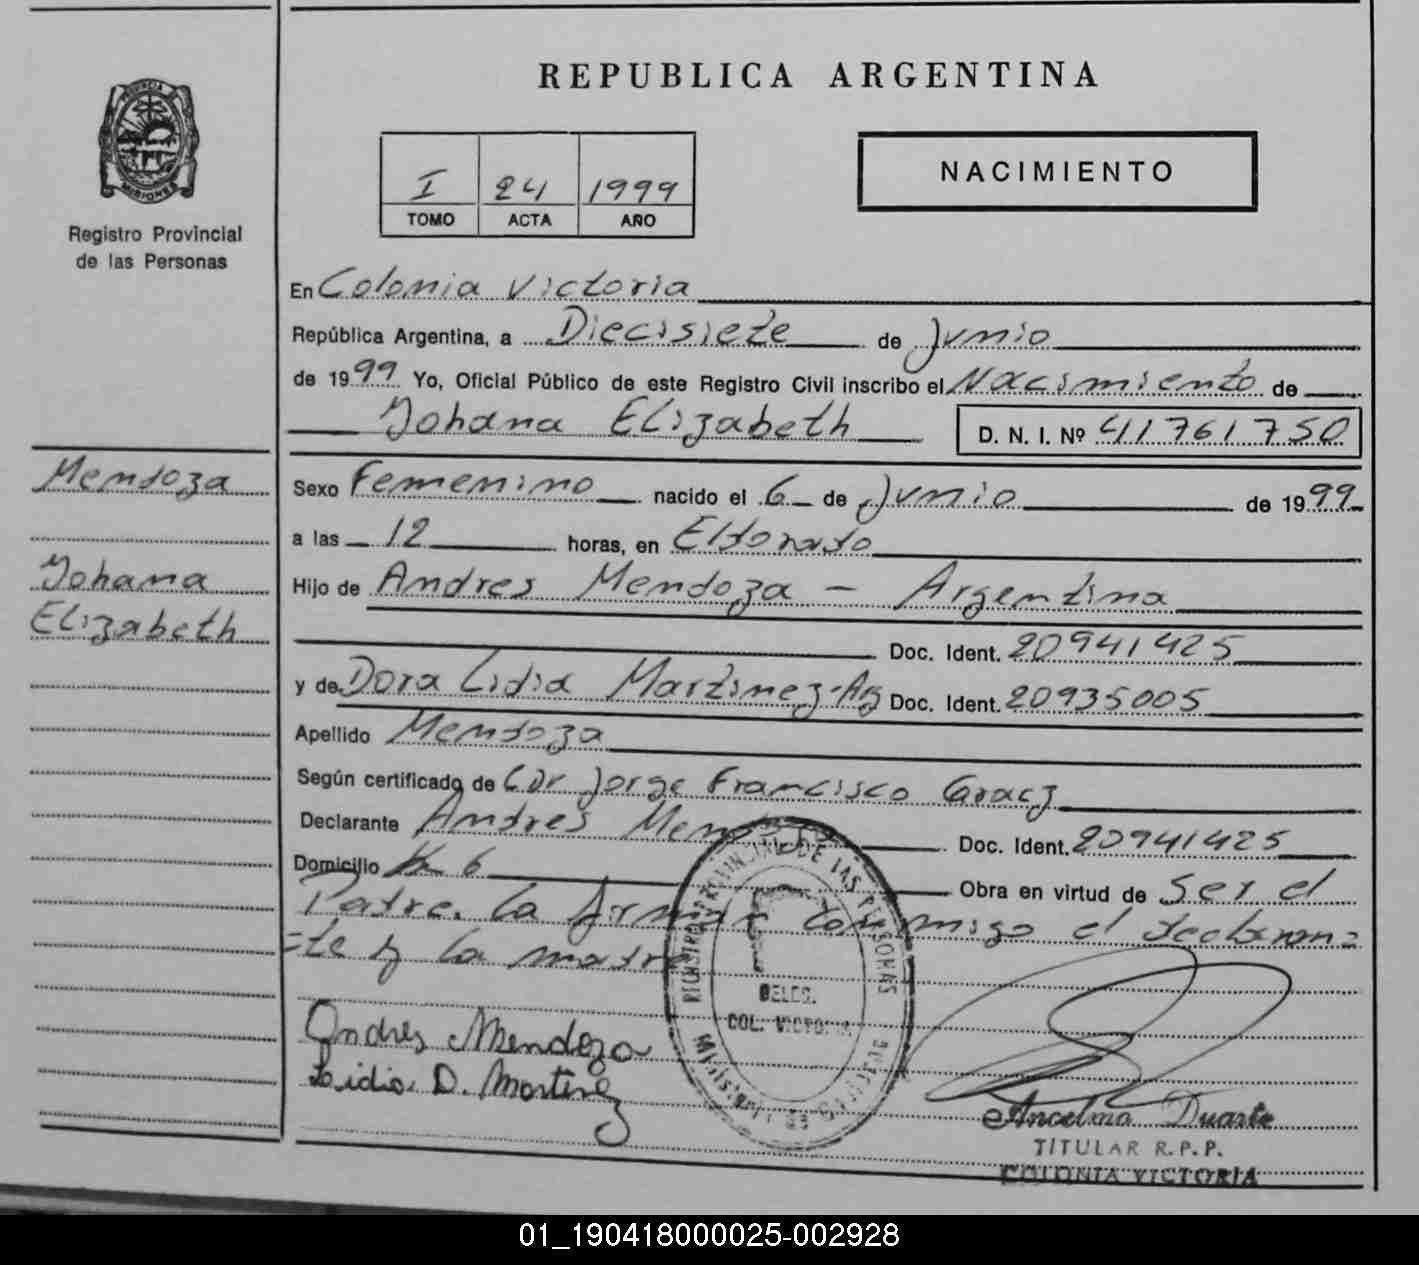 REPUBLICA ARGENTINA
PROVINCIA DE
MISIONES
Registro Provincial
de las Personas
I 24 1999
TOMO ACTA AÑO
NACIMIENTO
En Colonia Victoria
República Argentina, a Diecisiete de Junio
de 1999 Yo, Oficial Público de este Registro Civil inscribo el Nacimiento de
Yohana Elizabeth D. N. I. Nº 41761750
Mendoza
Yohana
Elizabeth
Sexo Femenino nacido el 6 de Junio de 1999
a las 12 horas, en Eldorado
Hijo de Andres Mendoza - Argentina
Doc. Ident. 20941425
y de Dora Lidia Martinez-Arg Doc. Ident. 20935005
Apellido Mendoza
Según certificado de Jorge Francisco
Declarante Andres Mendoza Doc. Ident. 20941425
Domicilio K 6 Obra en virtud de Ser el
Padre. La firman conmigo el declaran=
=te y la madre
REGISTRO PROVINCIAL DE LAS PERSONAS
DELEG.
COL. VICTORIA
Ministerio de Gobierno
Andres Mendoza
Lidia D. Martinez
Ancelmo Duarte
TITULAR R.P.P.
COLONIA VICTORIA
01_190418000025-002928